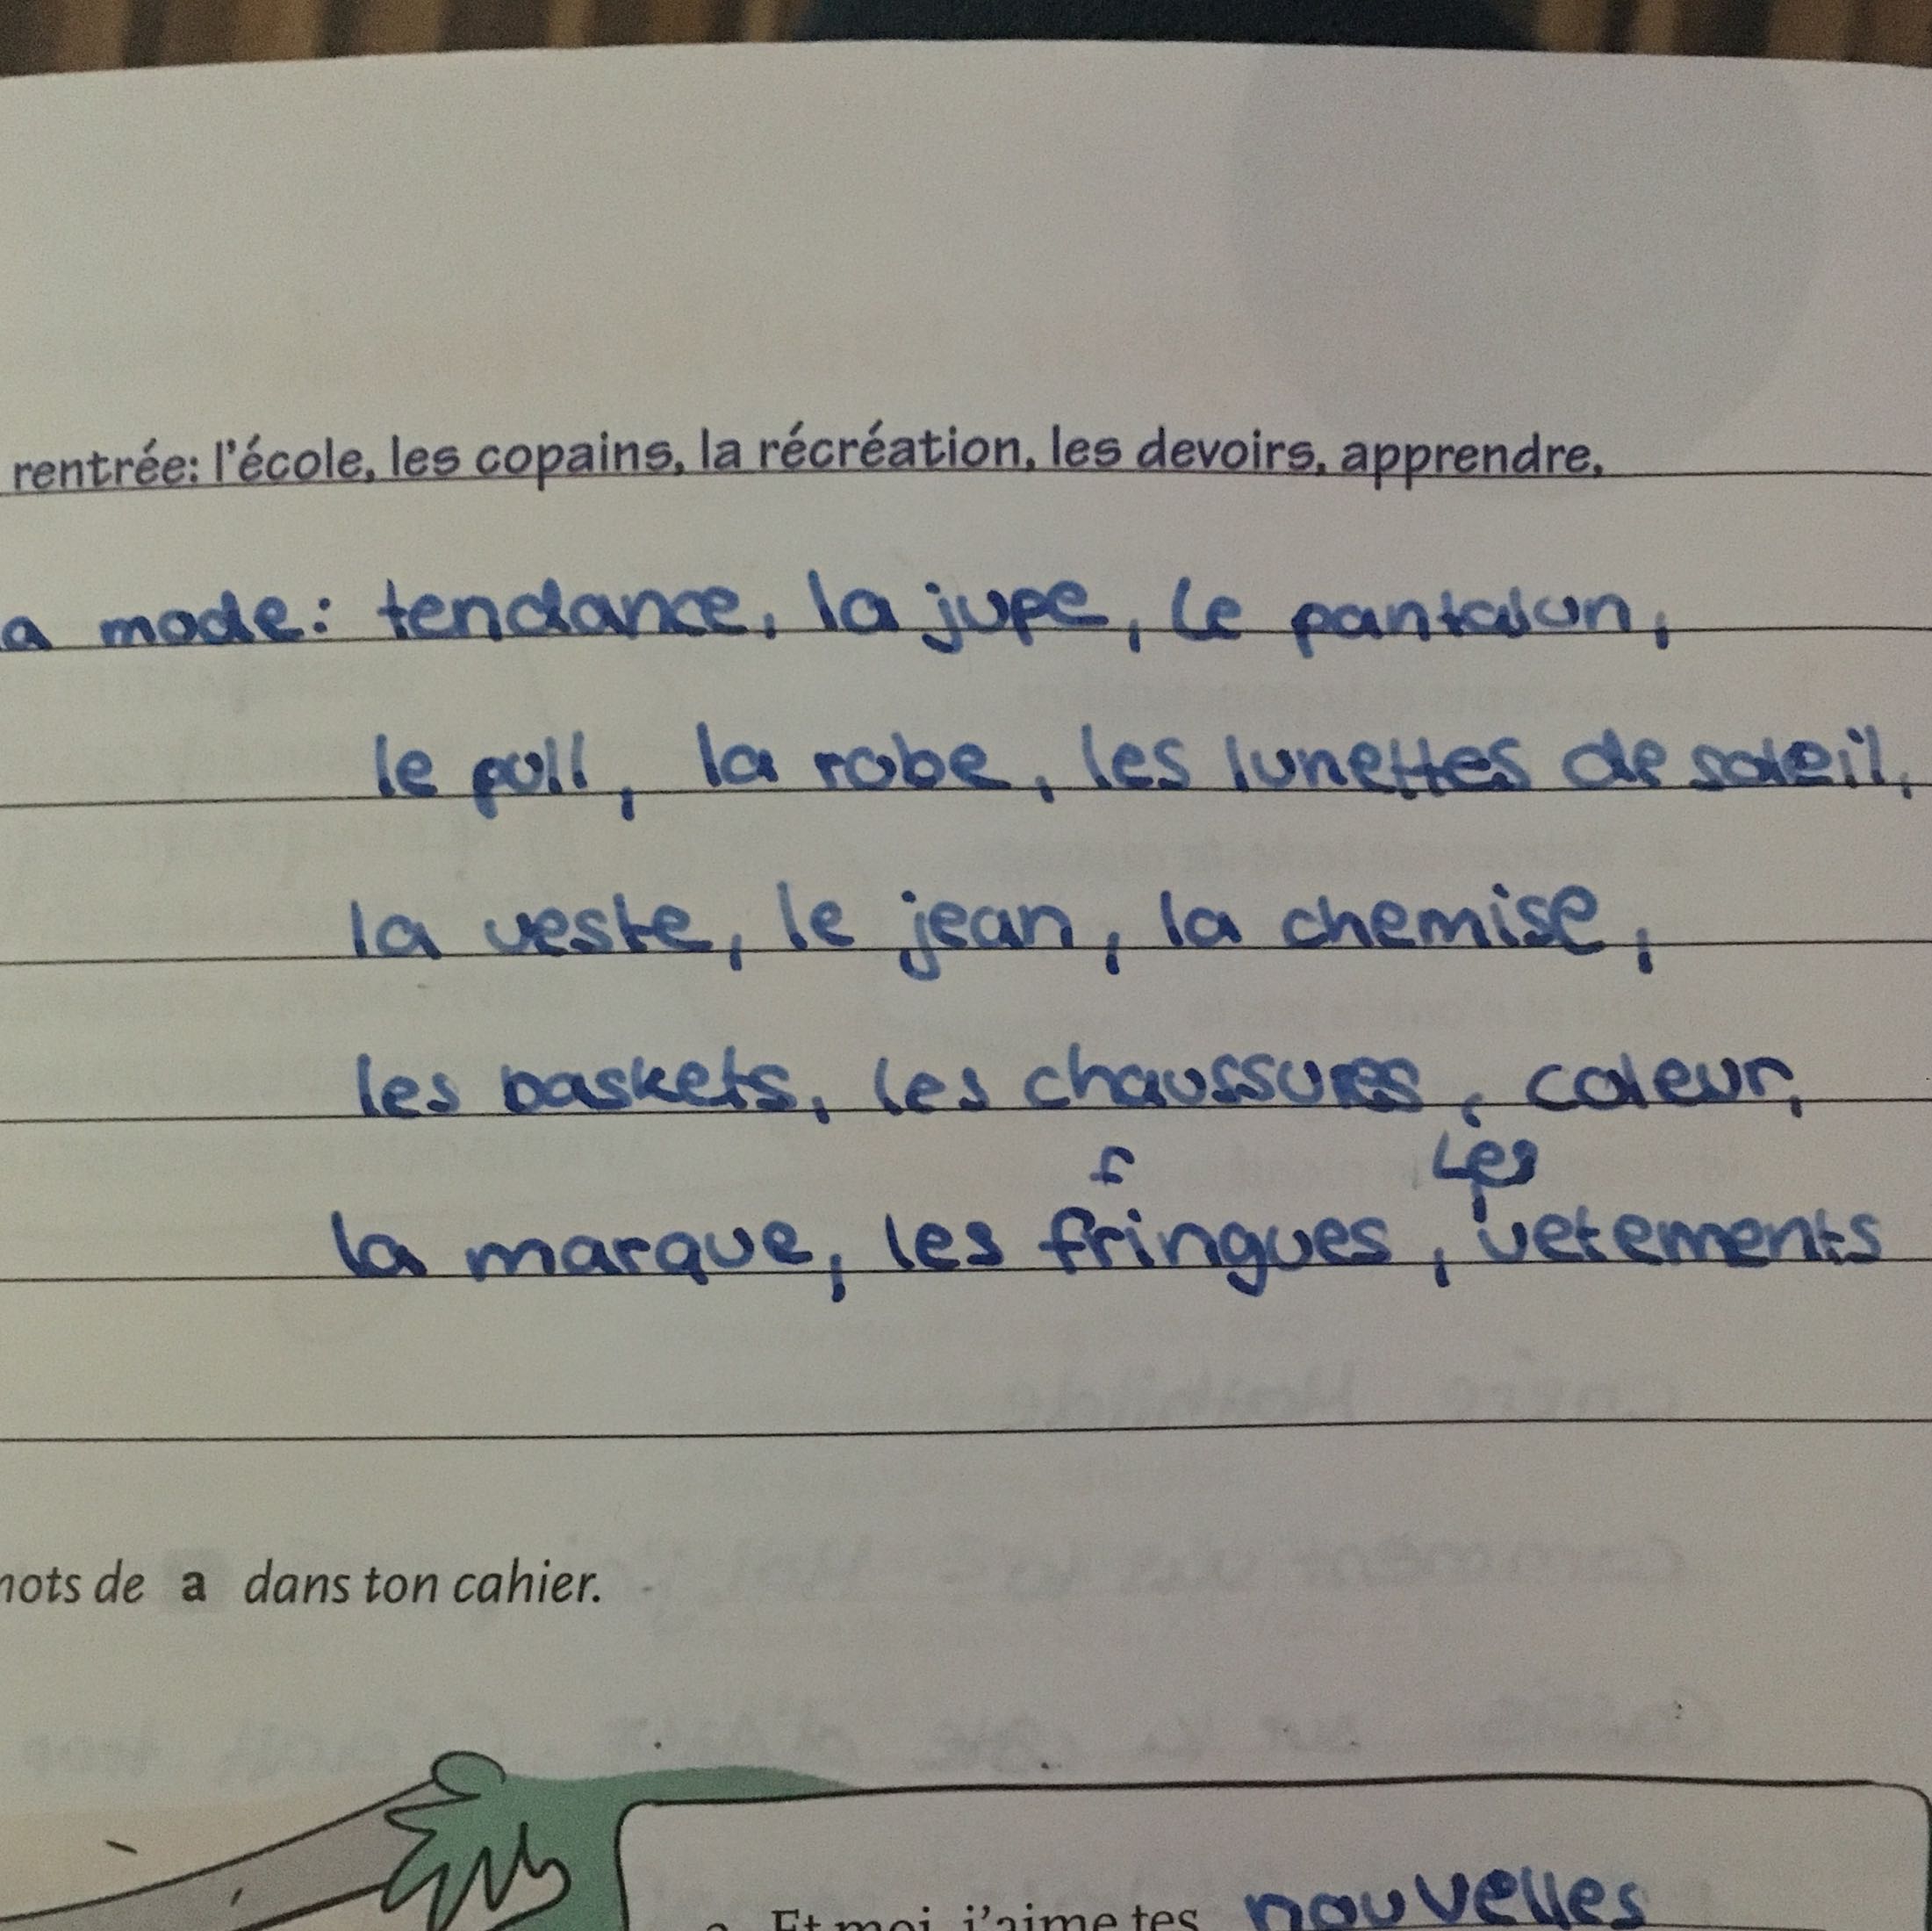 rentrée: l'école, les copains, la récréation, les devoirs, apprendre,
a mode: tendance, la jupe, le pantalon,
le pull, la robe, les lunettes de soleil,
la veste, le jean, la chemise,
les baskets, les chaussures, coleur,
f les
la marque, les fringues, vetements
mots de a dans ton cahier.
Et moi, j'aime tes nouvelles